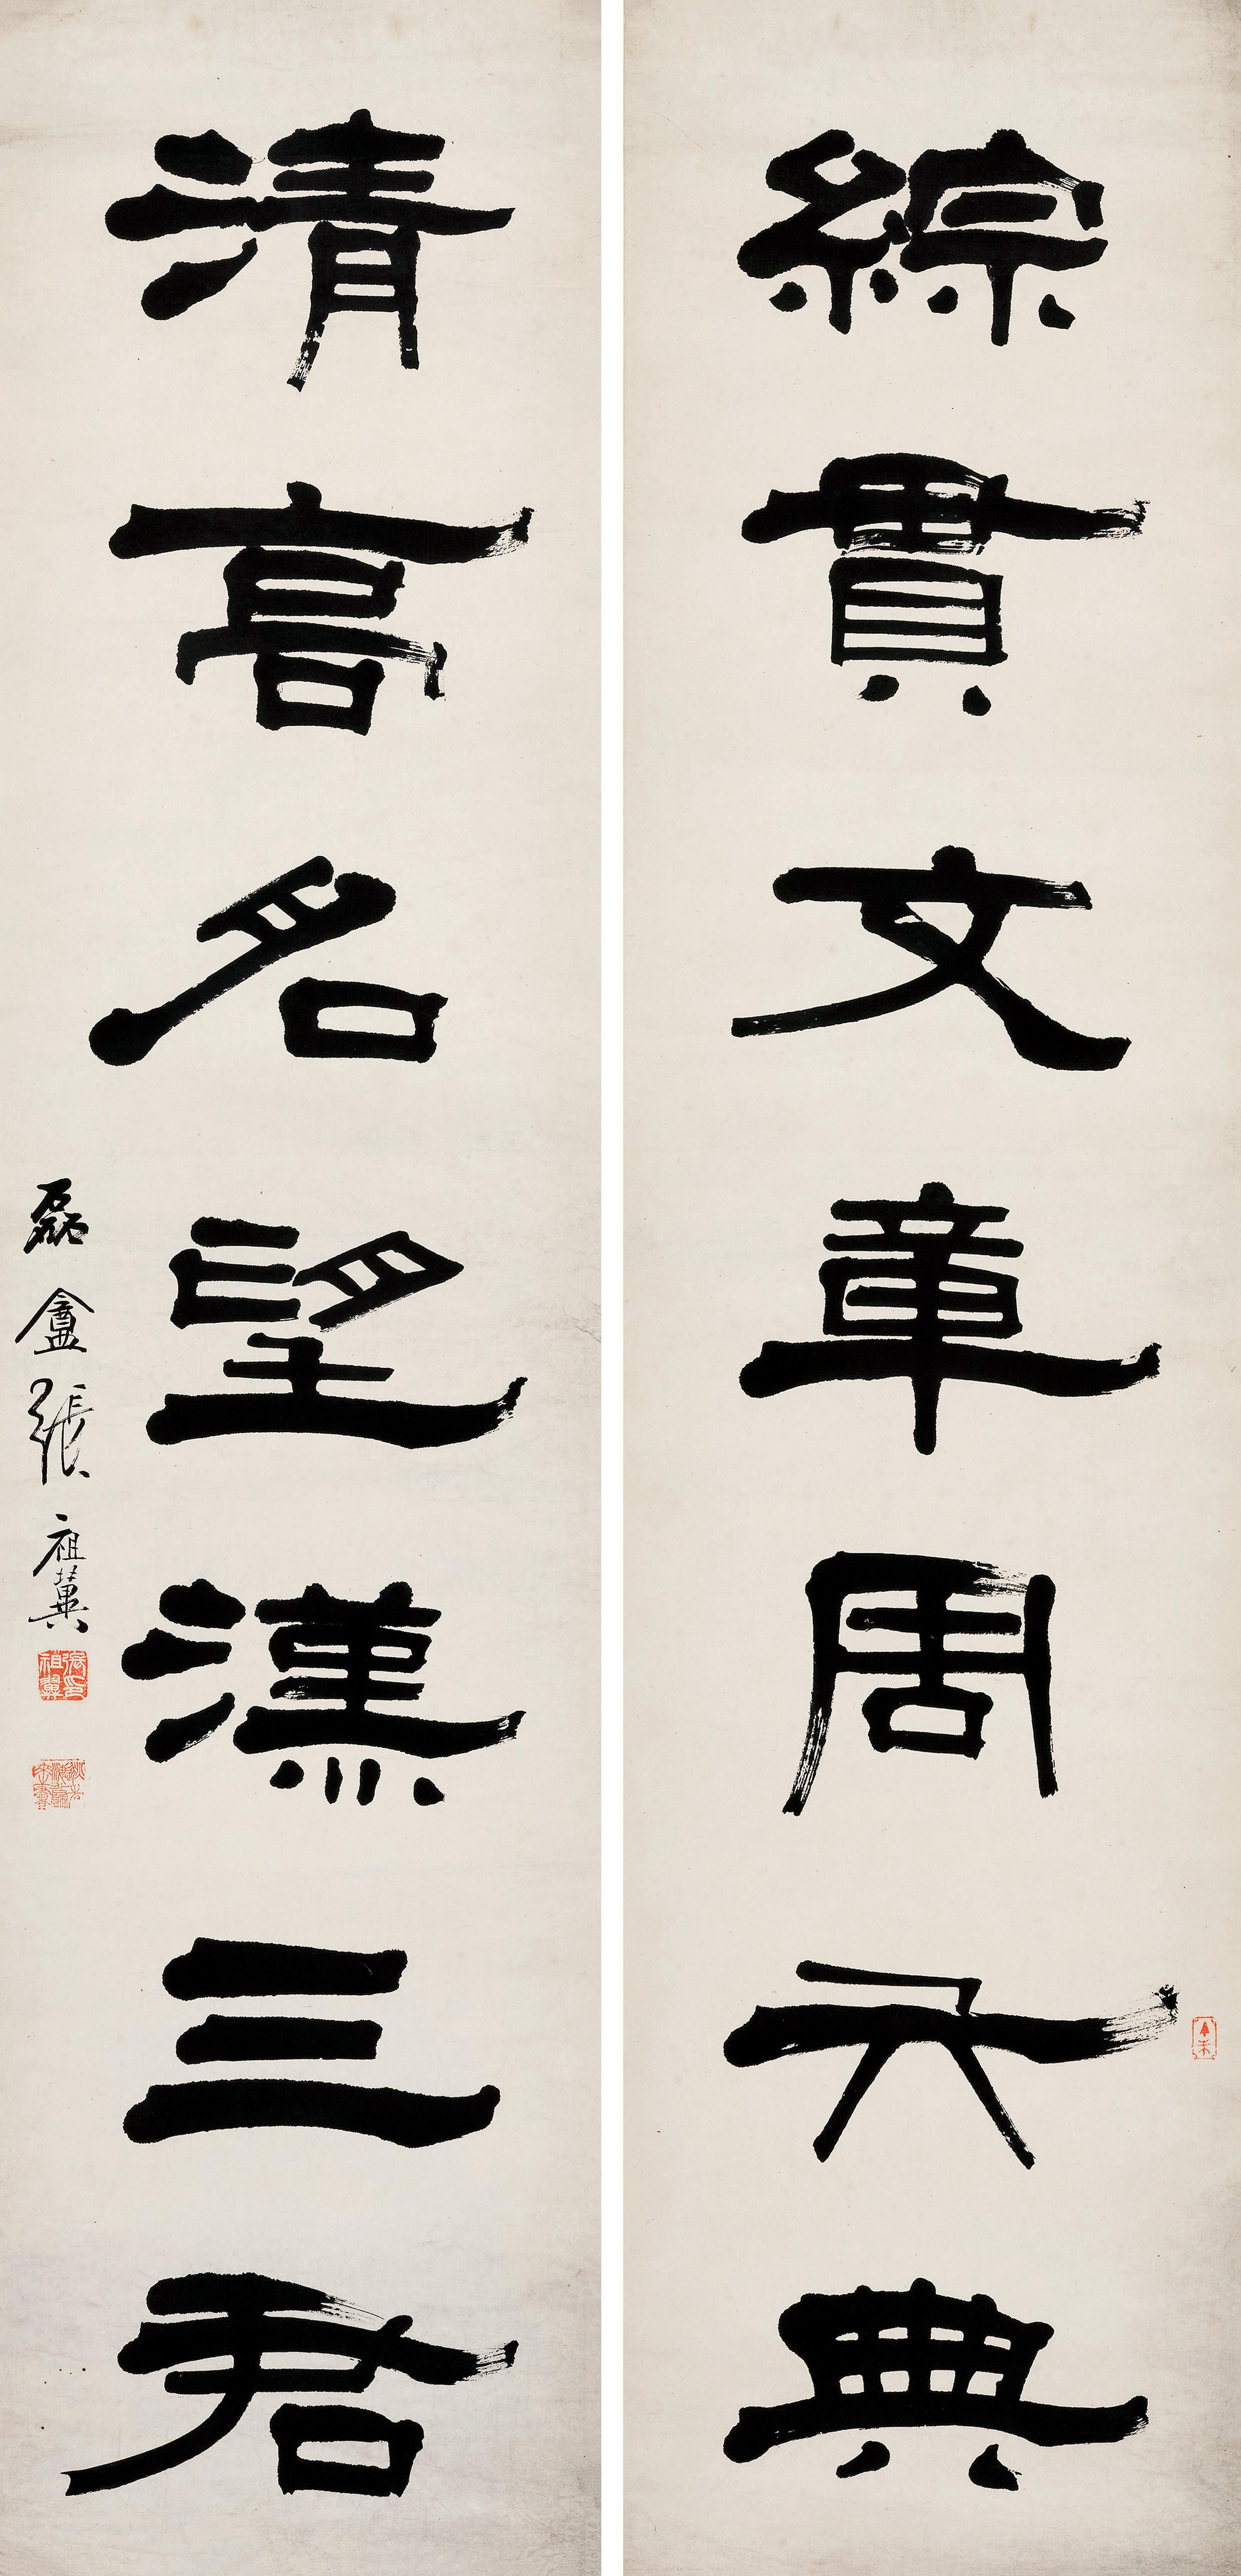 綜貫文章周六典
清高名望漢三君
磊盦張祖翼
張祖翼印